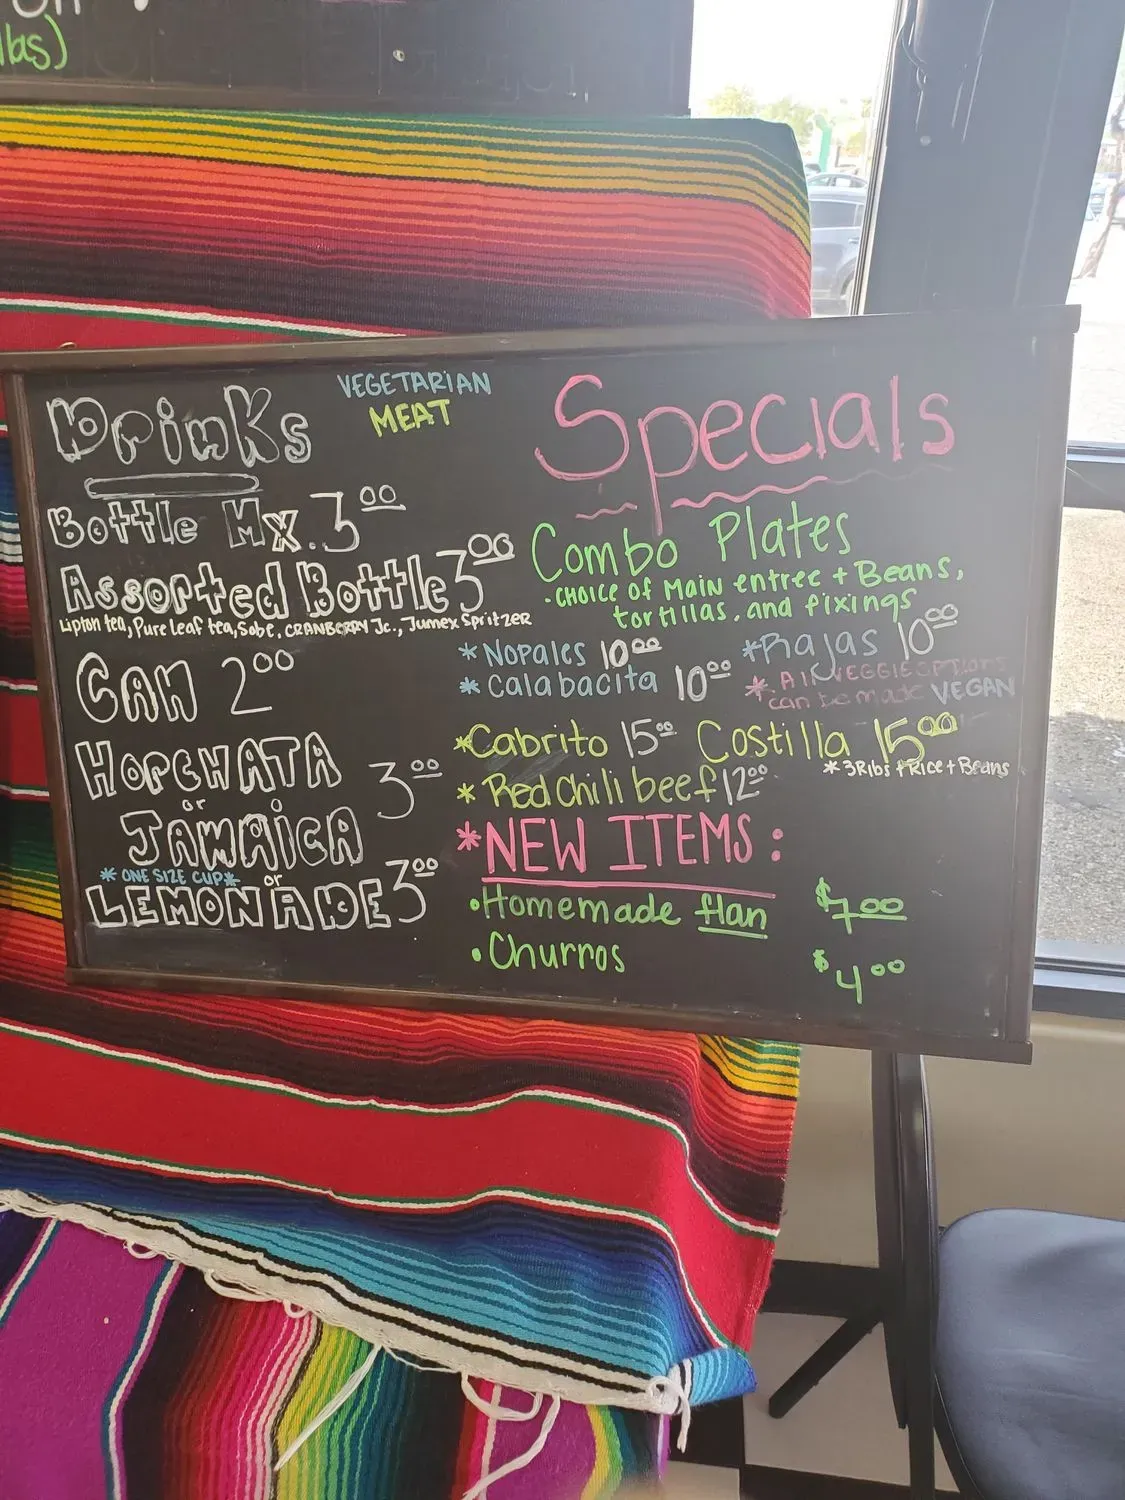 lbs)
Drinks
VEGETARIAN
MEAT
Bottle Mx. 3 00
Assorted Bottle 3 00
Lipton tea, Pure Leaf tea, Sobe, CRANBERRY Jc., Jumex Spritzer
CAN 2 00
HORCHATA
or
JAMAICA 3 00
* ONE SIZE CUP* or
LEMONADE 3 00
Specials
Combo Plates
- CHOICE of MAIN entree + Beans,
tortillas, and fixings
* NOPALES 10 00 * Rajas 10 00
* Calabacita 10 00 * All VEGGIE OPTIONS
can be made VEGAN
* Cabrito 15 00 Costilla 15 00
* 3 Ribs + Rice + Beans
* Red Chili beef 12 00
* NEW ITEMS:
• Homemade flan $7 00
• Churros $4 00